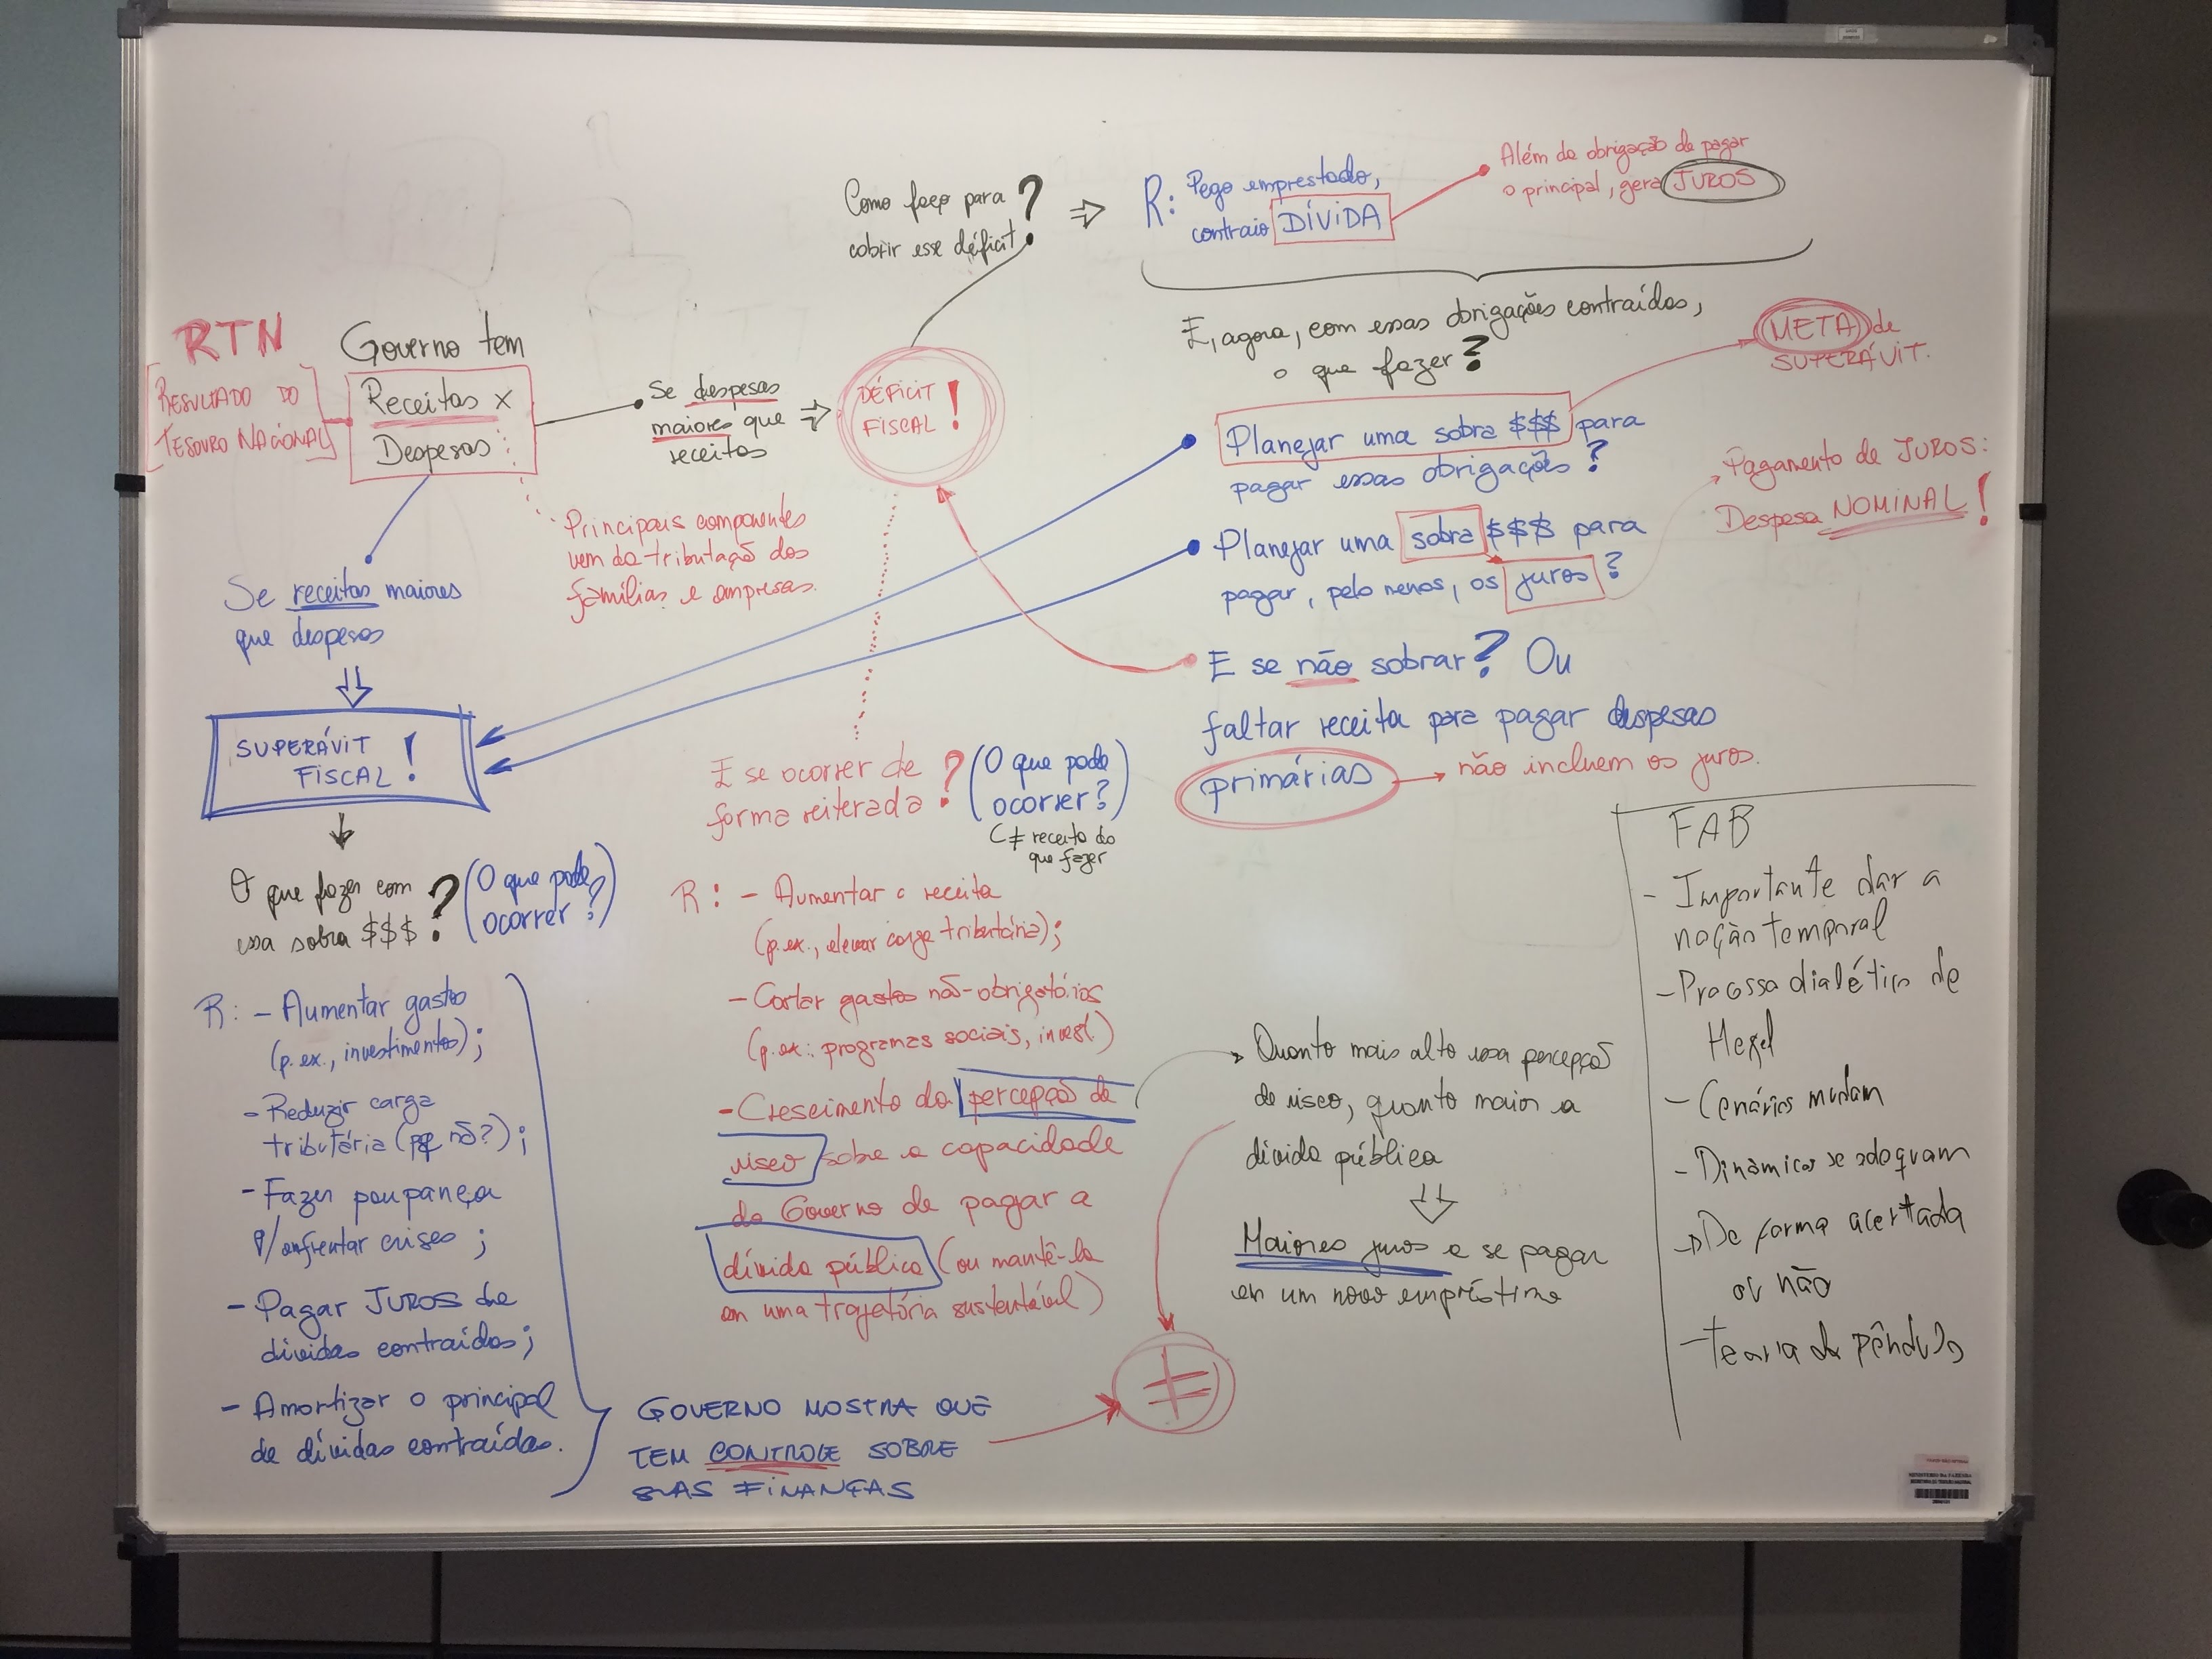 RTN
[RESULTADO DO
TESOURO NACIONAL]
Governo tem
Receitas x
Despesas
Se despesas
maiores que
receitas
⇒
DÉFICIT
FISCAL!
Como faço para
cobrir esse déficit?
⇒
R: Pego emprestado,
contraio DÍVIDA
Além da obrigação de pagar
o principal, gera JUROS
E, agora, com essas obrigações contraídas,
o que fazer?
Planejar uma sobra $$$ para
pagar essas obrigações?
META de
SUPERÁVIT.
Planejar uma sobra $$$ para
pagar, pelo menos, os juros?
Pagamento de JUROS:
Despesa NOMINAL!
E se não sobrar? Ou
faltar receita para pagar despesas
primárias
não incluem os juros.
Principais componentes
vem da tributação das
famílias e empresas.
Se receitas maiores
que despesas
SUPERÁVIT
FISCAL!
O que fazer com
essa sobra $$$?
(O que pode
ocorrer?)
R: - Aumentar gastos
(p.ex., investimentos);
- Reduzir carga
tributária (pq não?);
- Fazer poupança
p/ enfrentar crises;
- Pagar JUROS de
dívidas contraídas;
- Amortizar o principal
de dívidas contraídas.
GOVERNO MOSTRA QUE
TEM CONTROLE SOBRE
SUAS FINANÇAS
E se ocorrer de
forma reiterada?
(O que pode
ocorrer?)
(≠ receita do
que fazer
R: - Aumentar a receita
(p.ex., elevar carga tributária);
- Cortar gastos não-obrigatórios
(p.ex.: programas sociais, invest.)
- Crescimento da percepção de
risco sobre a capacidade
do Governo de pagar a
dívida pública (ou mantê-la
em uma trajetória sustentável)
Quanto mais alto essa percepção
de risco, quanto maior a
dívida pública
⇓
Maiores juros a se pagar
em um novo empréstimo
≠
FAB
- Importante dar a
noção temporal
- Processo dialético de
Hegel
- Cenários mudam
- Dinâmicas se adequam
→ De forma acertada
ou não
- Teoria do pêndulo